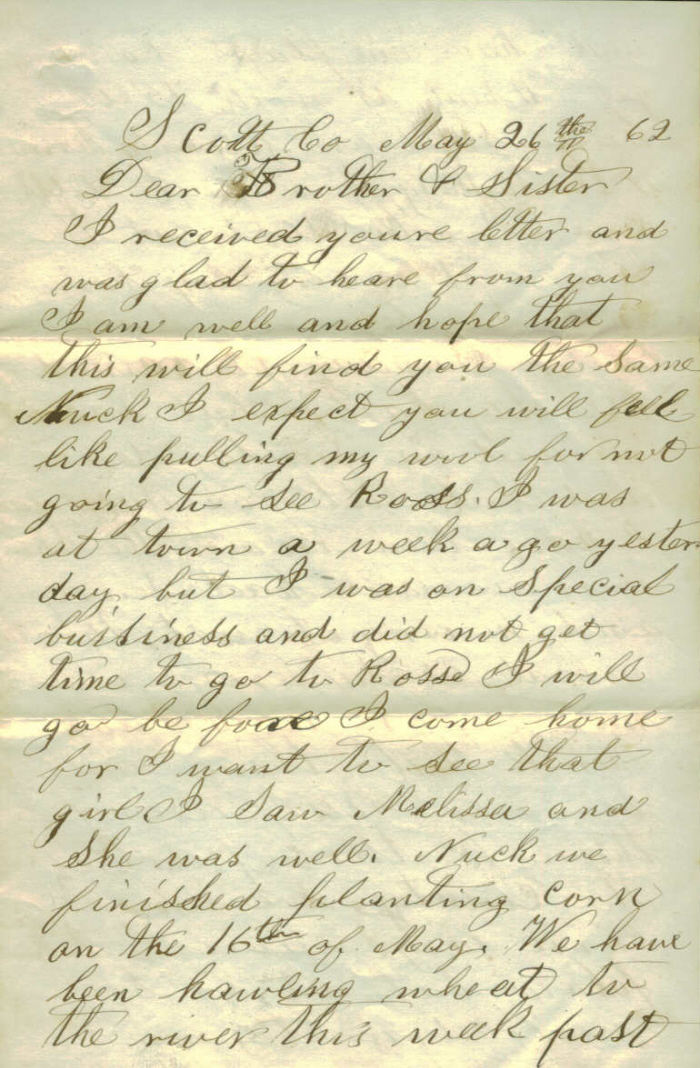 Scott Co May 26th 62
Dear Brother & Sister
I received youre letter and
was glad to heare from you
I am well and hope that
this will find you the same
Nuck I expect you will feel
like pulling my wool for not
going to see Ross. I was
at town a week a go yester
day but I was on Special
buisiness and did not get
time to go to Rosse I will
go be fore I come home
for I want to see that
girl I Saw Melissa and
She was well. Nuck we
finished planting corn
on the 16th of May. We have
been hawling wheat to
the river this week past